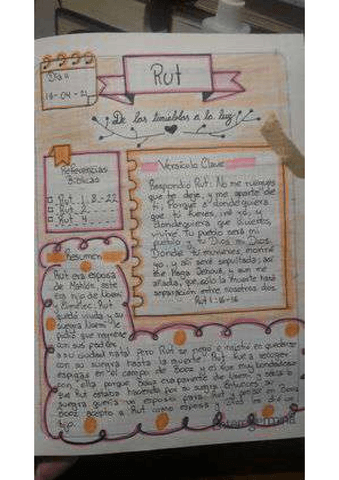 Día 11
18-04-21
Rut
De las tinieblas a la luz
Referencias
Bíblicas
Rut 1: 8-22
Rut 2:
Rut 4:
Versículo Clave
Respondió Rut: No me ruegues
que te deje, y me aparte de
ti; Porque a dondequiera
que tú fueres, iré yo, y
dondequiera que vivieres,
viviré. Tu pueblo será mi
pueblo y tu Dios mi Dios.
Donde tu murieres moriré
yo, y allí seré sepultada; así
me haga Jehová, y aun me
añada, que solo la muerte hará
separación entre nosotras dos.
Rut 1: 16-
Resumen
Rut era esposa
de Mahlón, este
era hijo de Noemí
y Elimelec; Rut
quedó viuda y su
suegra Noemí le
pidió que regresara
con sus padres
a su ciudad natal Pero Rut se negó e insistió en quedarse
con su suegra hasta la muerte. Rut fue a recoger
espigas en el campo de Booz y él fue muy bondadoso
con ella porque Booz era pariente de Noemí y sabía lo
que Rut estaba haciendo por su suegra. Entonces, su
suegra quería un esposo para Rut y pensó en Booz
Booz aceptó a Rut como esposa y ella le dio un
hijo.